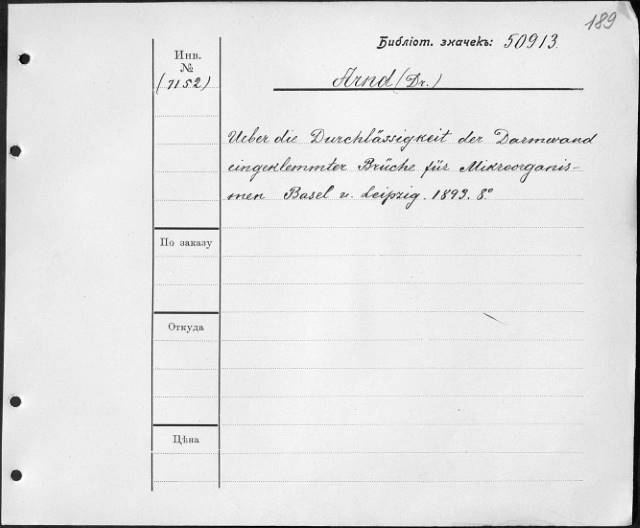 189
Библіот. значекъ: 50913
Инв.
№
(7152)
Arnd (Dr.)
Ueber die Durchlässigkeit der Darmwand
eingeklemmter Brüche für Mikroorganis-
men Basel u. Leipzig. 1893. 8°
По заказу
Откуда
Цѣна